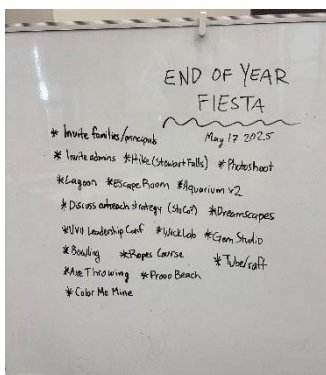 END OF YEAR
FIESTA
May 17 2025
* Invite families/principals
* Invite admins * Hike (Stewart Falls) * Photoshoot
* Lagoon * Escape Room * Aquarium x2
* Discuss outreach strategy (SoCo?) * Dreamscapes
* UVU Leadership Conf * WickLab * Gem Studio
* Bowling * Ropes Course * Tube/raft
* Axe Throwing * Provo Beach
* Color Me Mine